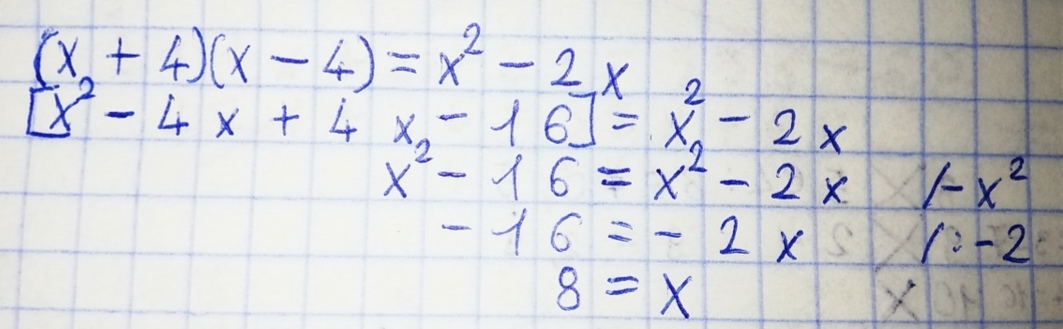 (x + 4)(x - 4) = x² - 2x
[x² - 4x + 4x - 16] = x² - 2x
x² - 16 = x² - 2x /-x²
-16 = -2x /:-2
8 = x